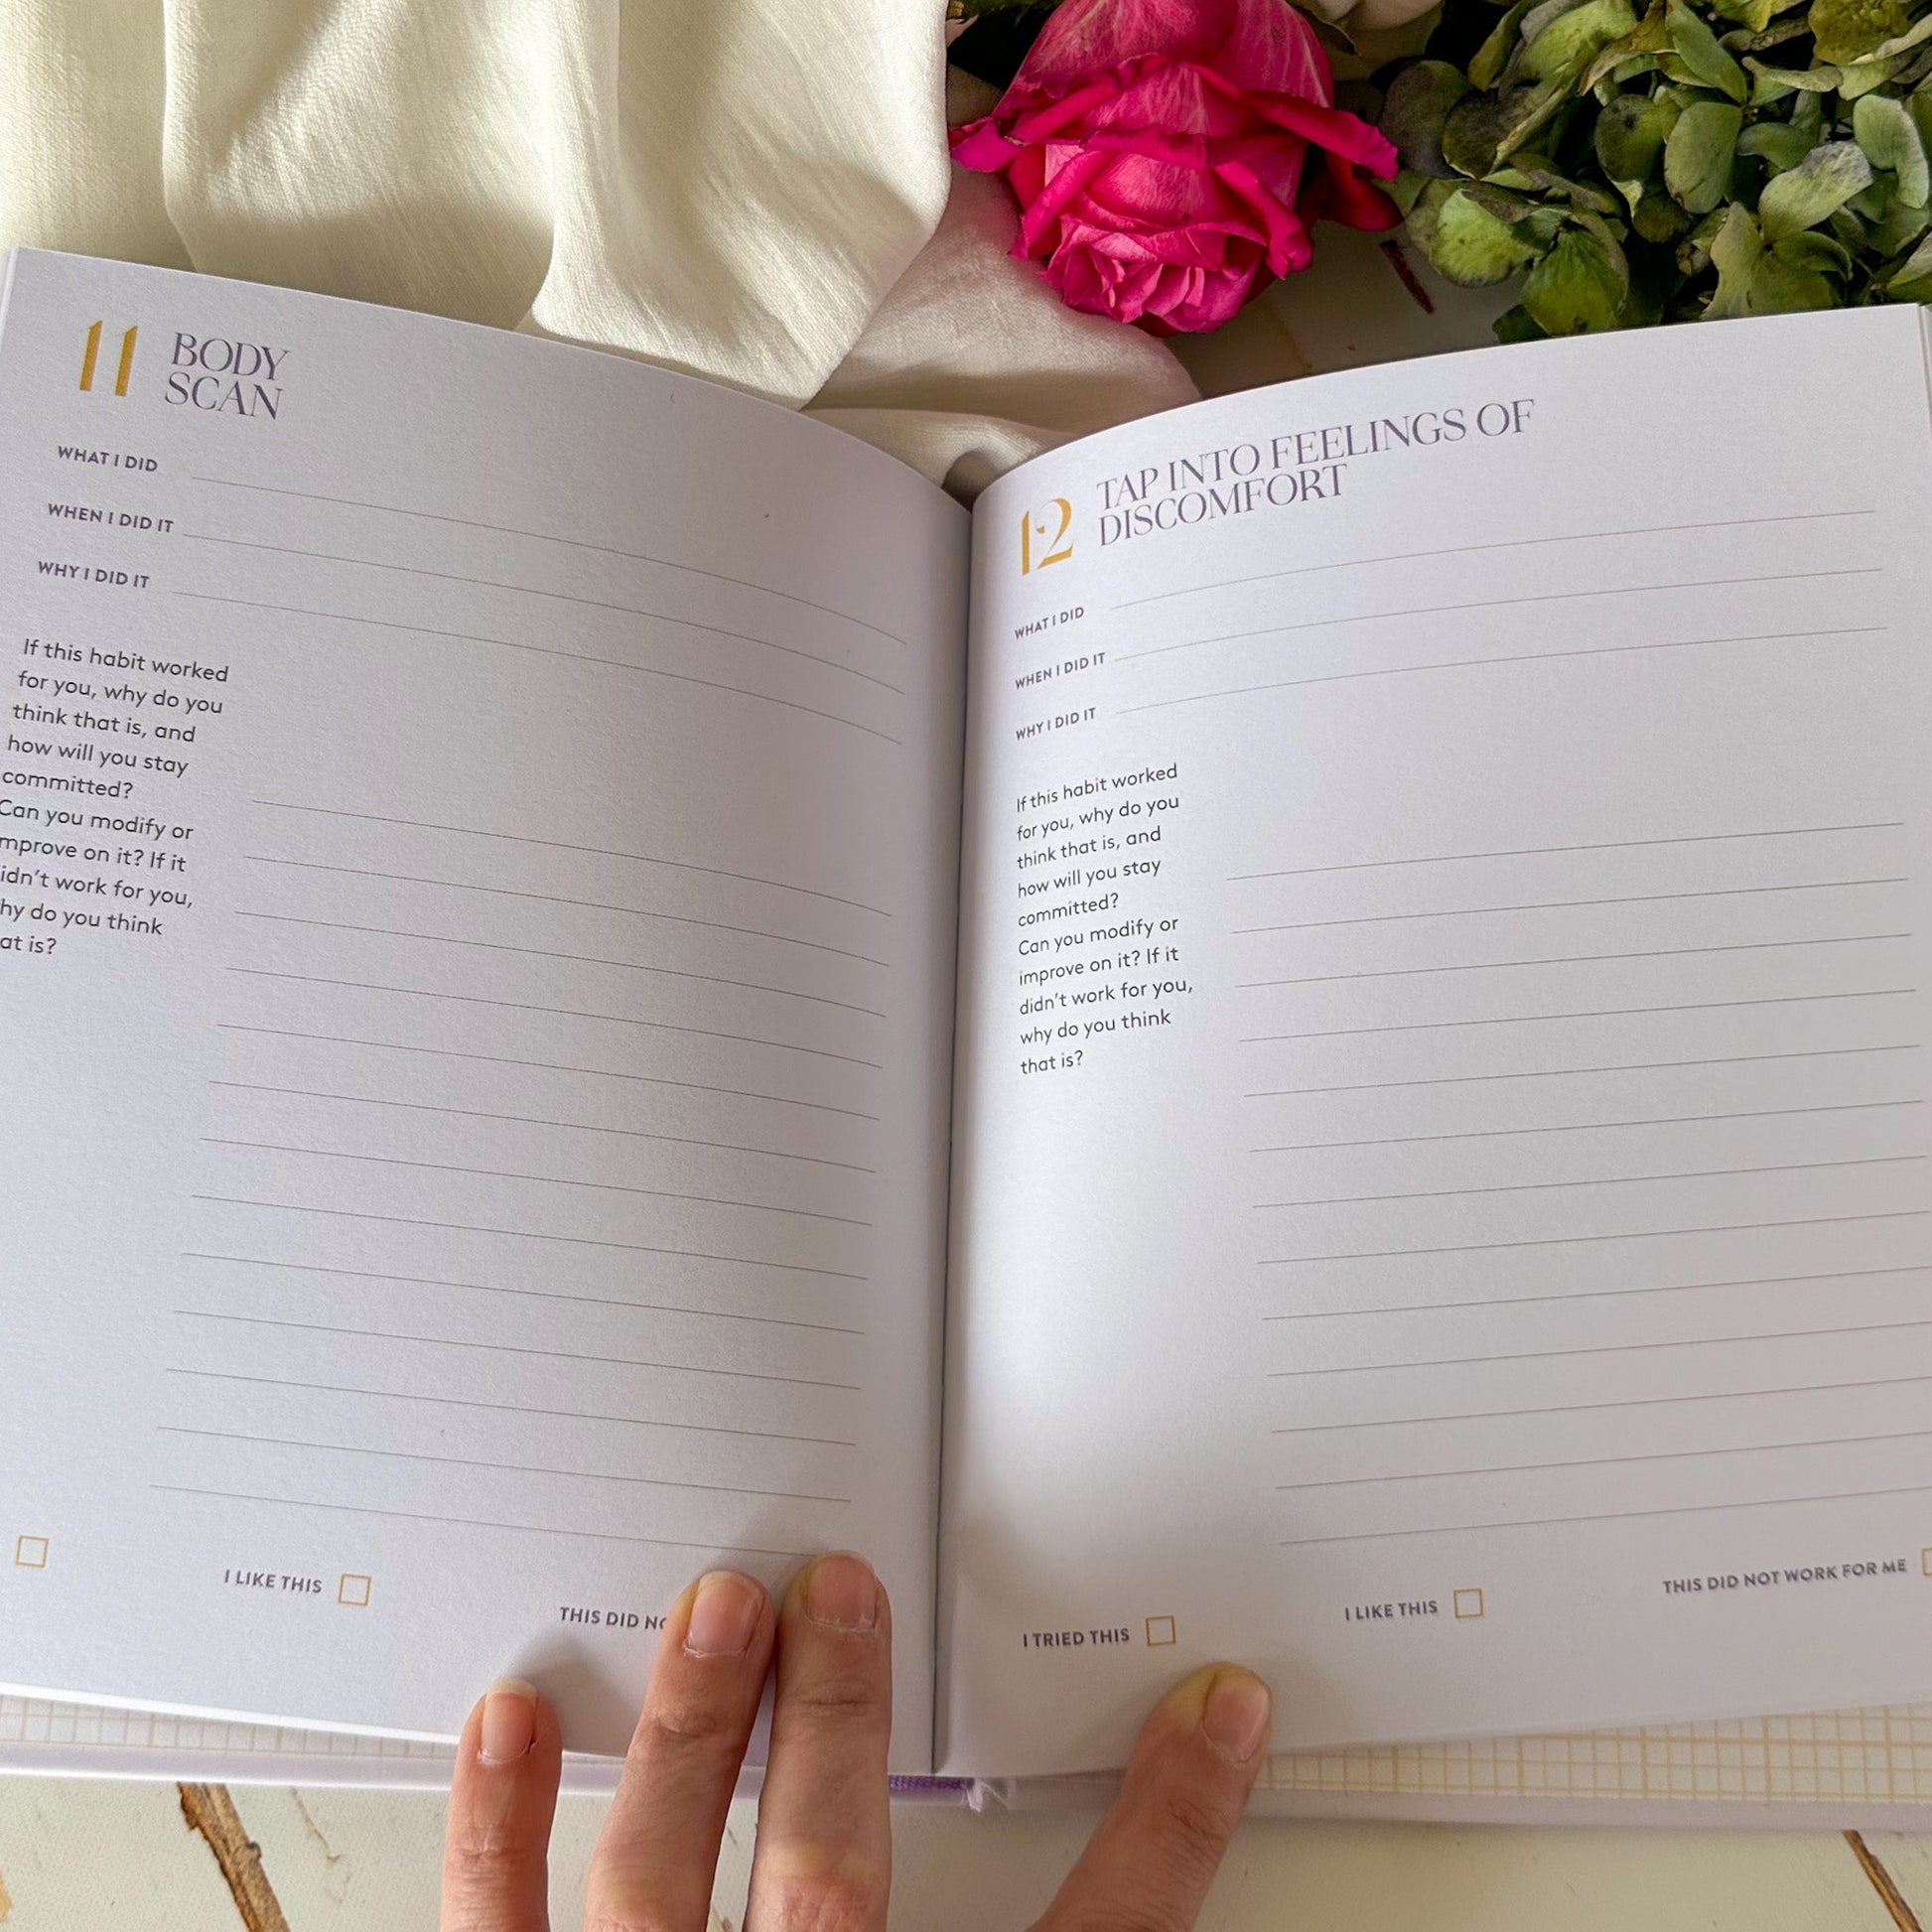 11 BODY
SCAN
WHAT I DID
WHEN I DID IT
WHY I DID IT
If this habit worked
for you, why do you
think that is, and
how will you stay
committed?
Can you modify or
mprove on it? If it
idn't work for you,
hy do you think
at is?
I LIKE THIS
THIS DID NO
12 TAP INTO FEELINGS OF
DISCOMFORT
WHAT I DID
WHEN I DID IT
WHY I DID IT
If this habit worked
for you, why do you
think that is, and
how will you stay
committed?
Can you modify or
improve on it? If it
didn't work for you,
why do you think
that is?
I TRIED THIS
I LIKE THIS
THIS DID NOT WORK FOR ME